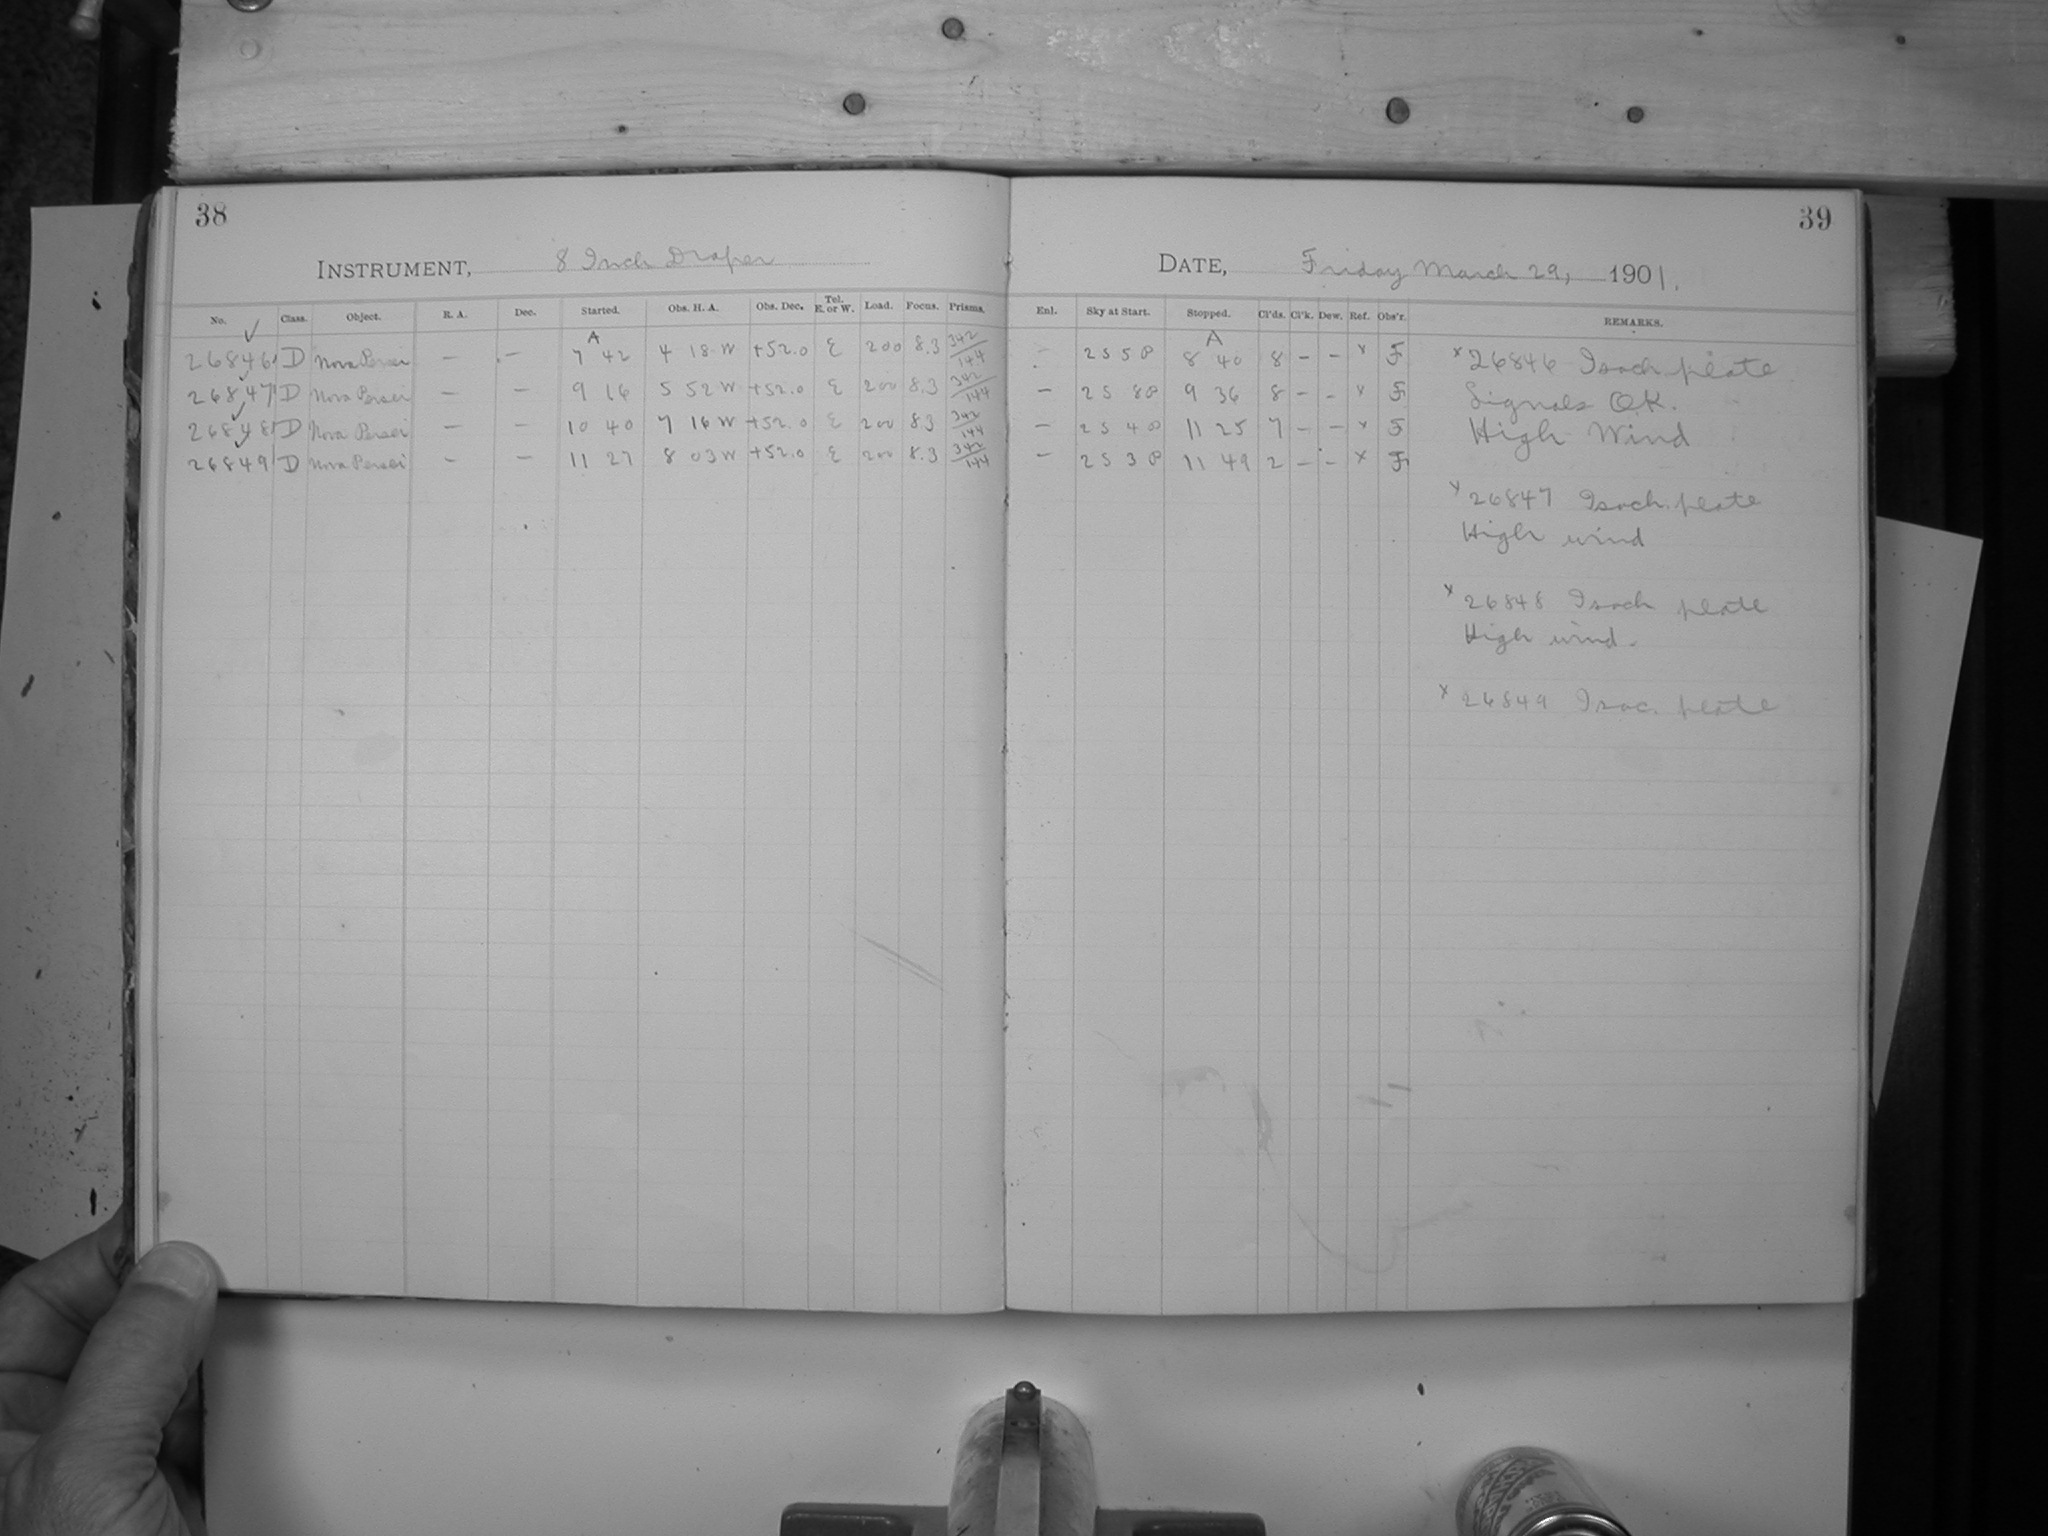 38
INSTRUMENT, 8 Inch Draper
No. Class. Object. R. A. Dec. Started. Obs. H. A. Obs. Dec. Tel. E. or W. Load. Focus. Prisms.
26846 D Nova Persei — — A 7 42 4 18 W +52.0 E 200 8.3 342/144
26847 D Nova Persei — — 9 16 5 52 W +52.0 E 200 8.3 342/144
26848 D Nova Persei — — 10 40 7 16 W +52.0 E 200 8.3 342/144
26849 D Nova Persei — — 11 27 8 03 W +52.0 E 200 8.3 342/144
39
DATE, Friday March 29, 1901.
Enl. Sky at Start. Stopped. Cl'ds. Cl'k. Dew. Ref. Obs'r. REMARKS.
— 2 5 5 P A 8 40 8 — — x F
— 2 5 8 P 9 36 8 — — x F
— 2 5 4 P 11 25 7 — — x F
— 2 5 3 P 11 49 2 — — x F
x 26846 Isoch. plate
Signals O.K.
High Wind
x 26847 Isoch. plate
High wind
x 26848 Isoch plate
High wind.
x 26849 Isoc. plate